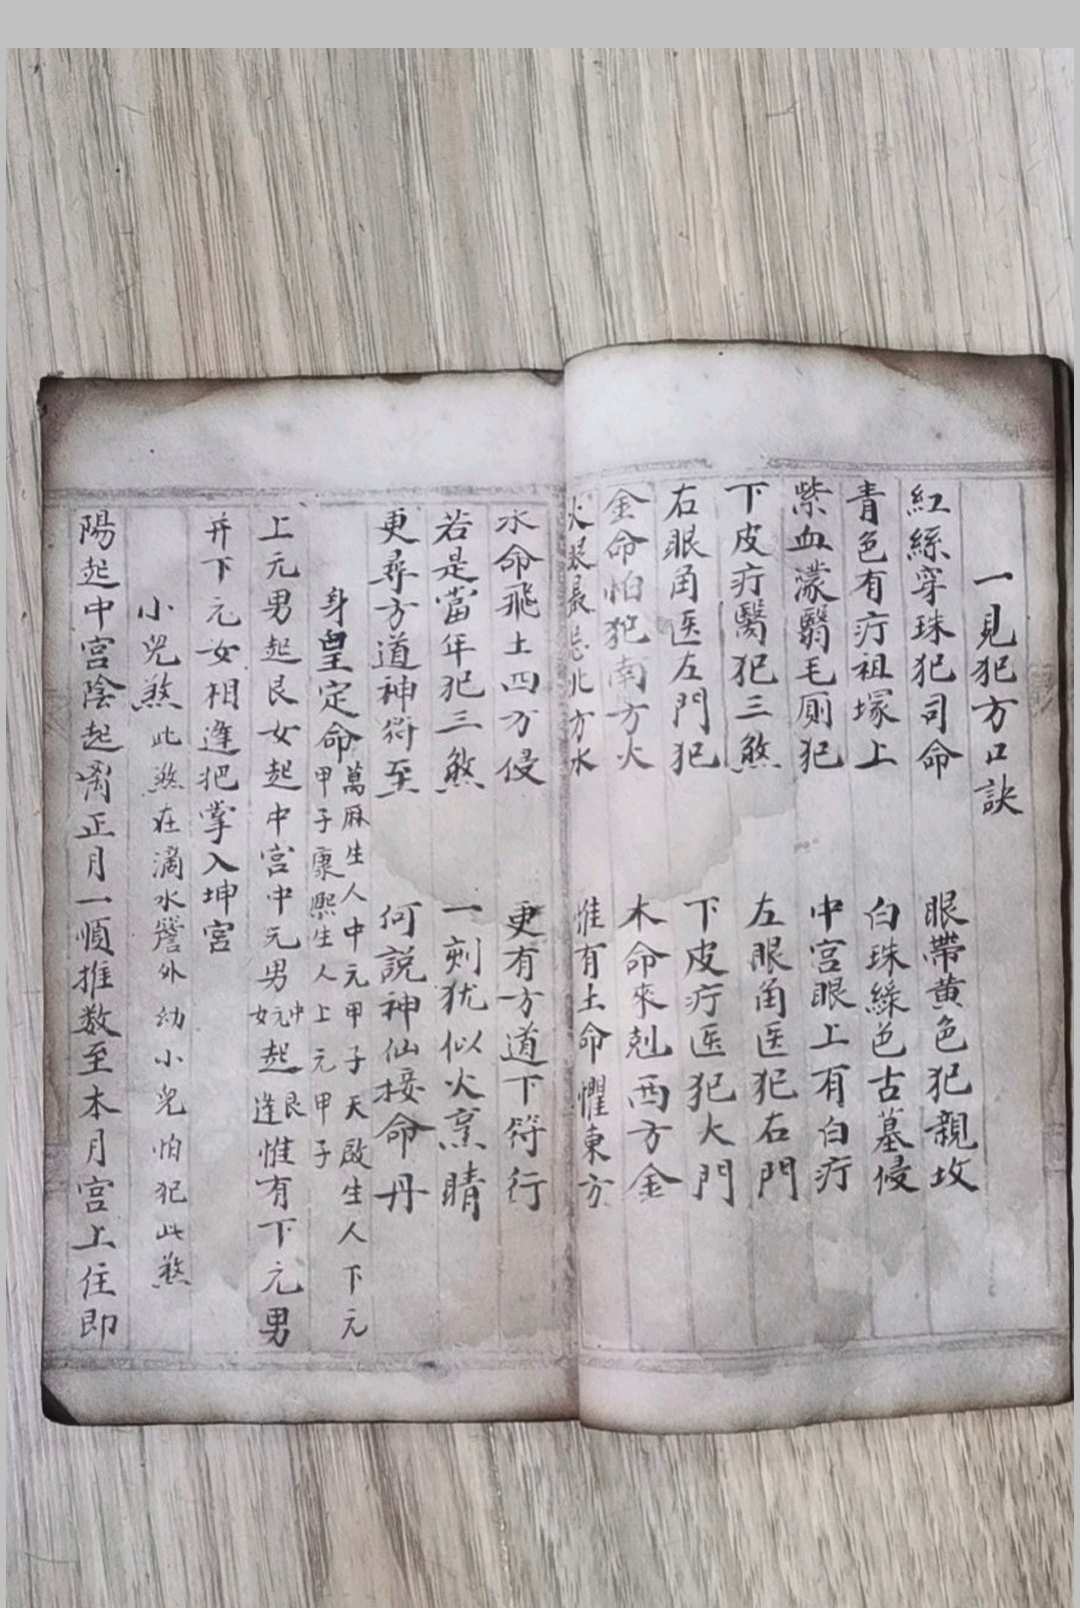 一見犯方口訣
紅絲穿珠犯司命 眼帶黄色犯親坟
青色有疔祖塚上 白珠綠色古墓侵
紫血濛翳毛厠犯 中宫眼上有白疔
下皮疔醫犯三煞 左眼角医犯右門
右眼角医左門犯 下皮疔医犯大門
金命怕犯南方火 木命來剋西方金
火 北方水 惟有土命懼東方
水命飛土四方侵 更有方道下符行
若是當年犯三煞 一刻犹似火烹睛
更尋方道神符至 何說神仙接命丹
身皇定命
萬麻生人中元甲子天啟生人下元
甲子康熙生人上元甲子
上元男起艮女起中宫中元男中元女起艮逢惟有下元男
并下元女相逢把掌入坤宫
小兒煞此煞在滴水簷外幼小兒怕犯此煞
陽起中宫陰起离正月一順推数至本月宫上住即